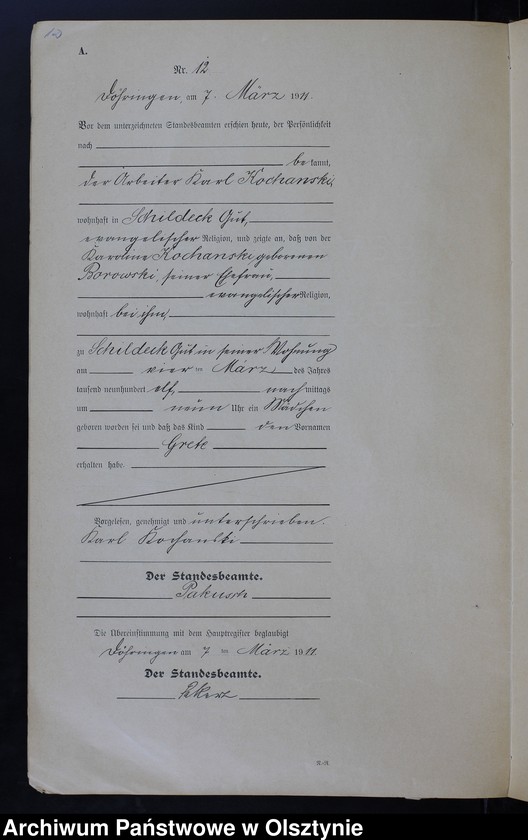 A.
Nr. 12
Döhringen, am 7. März 1911.
Vor dem unterzeichneten Standesbeamten erschien heute, der Persönlichkeit
nach
be kannt,
der Arbeiter Karl Kochanski,
wohnhaft in Schildeck Gut,
evangelischer Religion, und zeigte an, daß von der
Karoline Kochanski, geborenen
Borowski, seiner Ehefrau,
evangelischer Religion,
wohnhaft bei ihm,
zu Schildeck Gut in seiner Wohnung
am vier ten März, des Jahres
tausend neunhundert elf, nach mittags
um neun Uhr ein Mädchen
geboren worden sei und daß das Kind den Vornamen
Grete
erhalten habe.
Vorgelesen, genehmigt und unterschrieben.
Karl Kochanski
Der Standesbeamte.
Die Übereinstimmung mit dem Hauptregister beglaubigt
Döhringen am 7 ten März 1911.
Der Standesbeamte.
Archiwum Państwowe w Olsztynie